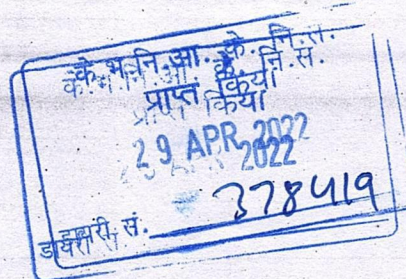 के.भ.नि.आ. के. नि.सं.
प्राप्त किया
29 APR 2022
डायरी सं. 378419